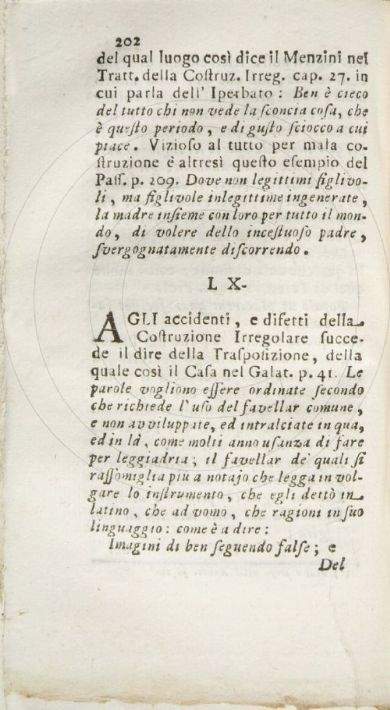 202
del qual luogo così dice il Menzini nel
Tratt. della Coſtruz. Irreg. cap. 27. in
cui parla dell' Iperbato : Ben è cieco
del tutto chi non vede la ſconcia coſa, che
è queſto periodo, e di guſto ſciocco a cui
piace. Vizioſo al tutto per mala co-
ſtruzione è altresì queſto eſempio del
Paſſ. p. 209. Dove non legittimi figlivo-
li, ma figlivole inlegittime ingenerate,
la madre inſieme con loro per tutto il mon-
do, di volere dello inceſtuoſo padre,
ſvergognatamente diſcorrendo.
L X-
AGLI accidenti, e difetti della
Coſtruzione Irregolare ſucce-
de il dire della Traſpoſizione, della
quale così il Caſa nel Galat. p. 41. Le
parole vogliono eſſere ordinate ſecondo
che richiede l' uſo del favellar comune,
e non avviluppate, ed intralciate in qua,
ed in là, come molti anno uſanza di fare
per leggiadria; il favellar de' quali ſi
raſſomiglia piu a notajo che legga in vol-
gare lo inſtrumento, che egli dettò in
latino, che ad vomo, che ragioni in ſuo
linguaggio: come è a dire:
Imagini di ben ſeguendo falſe; e
Del